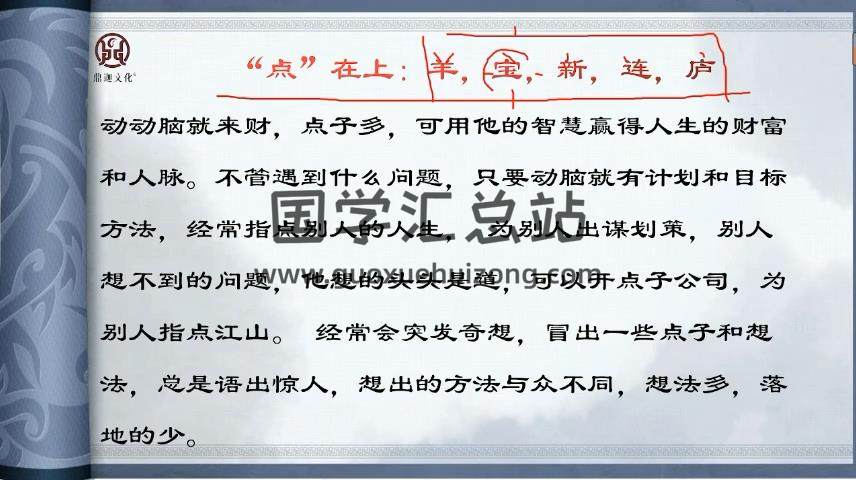 鼎迦文化
“点”在上：羊，宝，新，连，庐
动动脑就来财，点子多，可用他的智慧赢得人生的财富
和人脉。不管遇到什么问题，只要动脑就有计划和目标
方法，经常指点别人的人生，为别人出谋划策，别人
想不到的问题，他想的头头是道，可以开点子公司，为
别人指点江山。 经常会突发奇想，冒出一些点子和想
法，总是语出惊人，想出的方法与众不同，想法多，落
地的少。
国学汇总站
www.guoxuehuizong.com